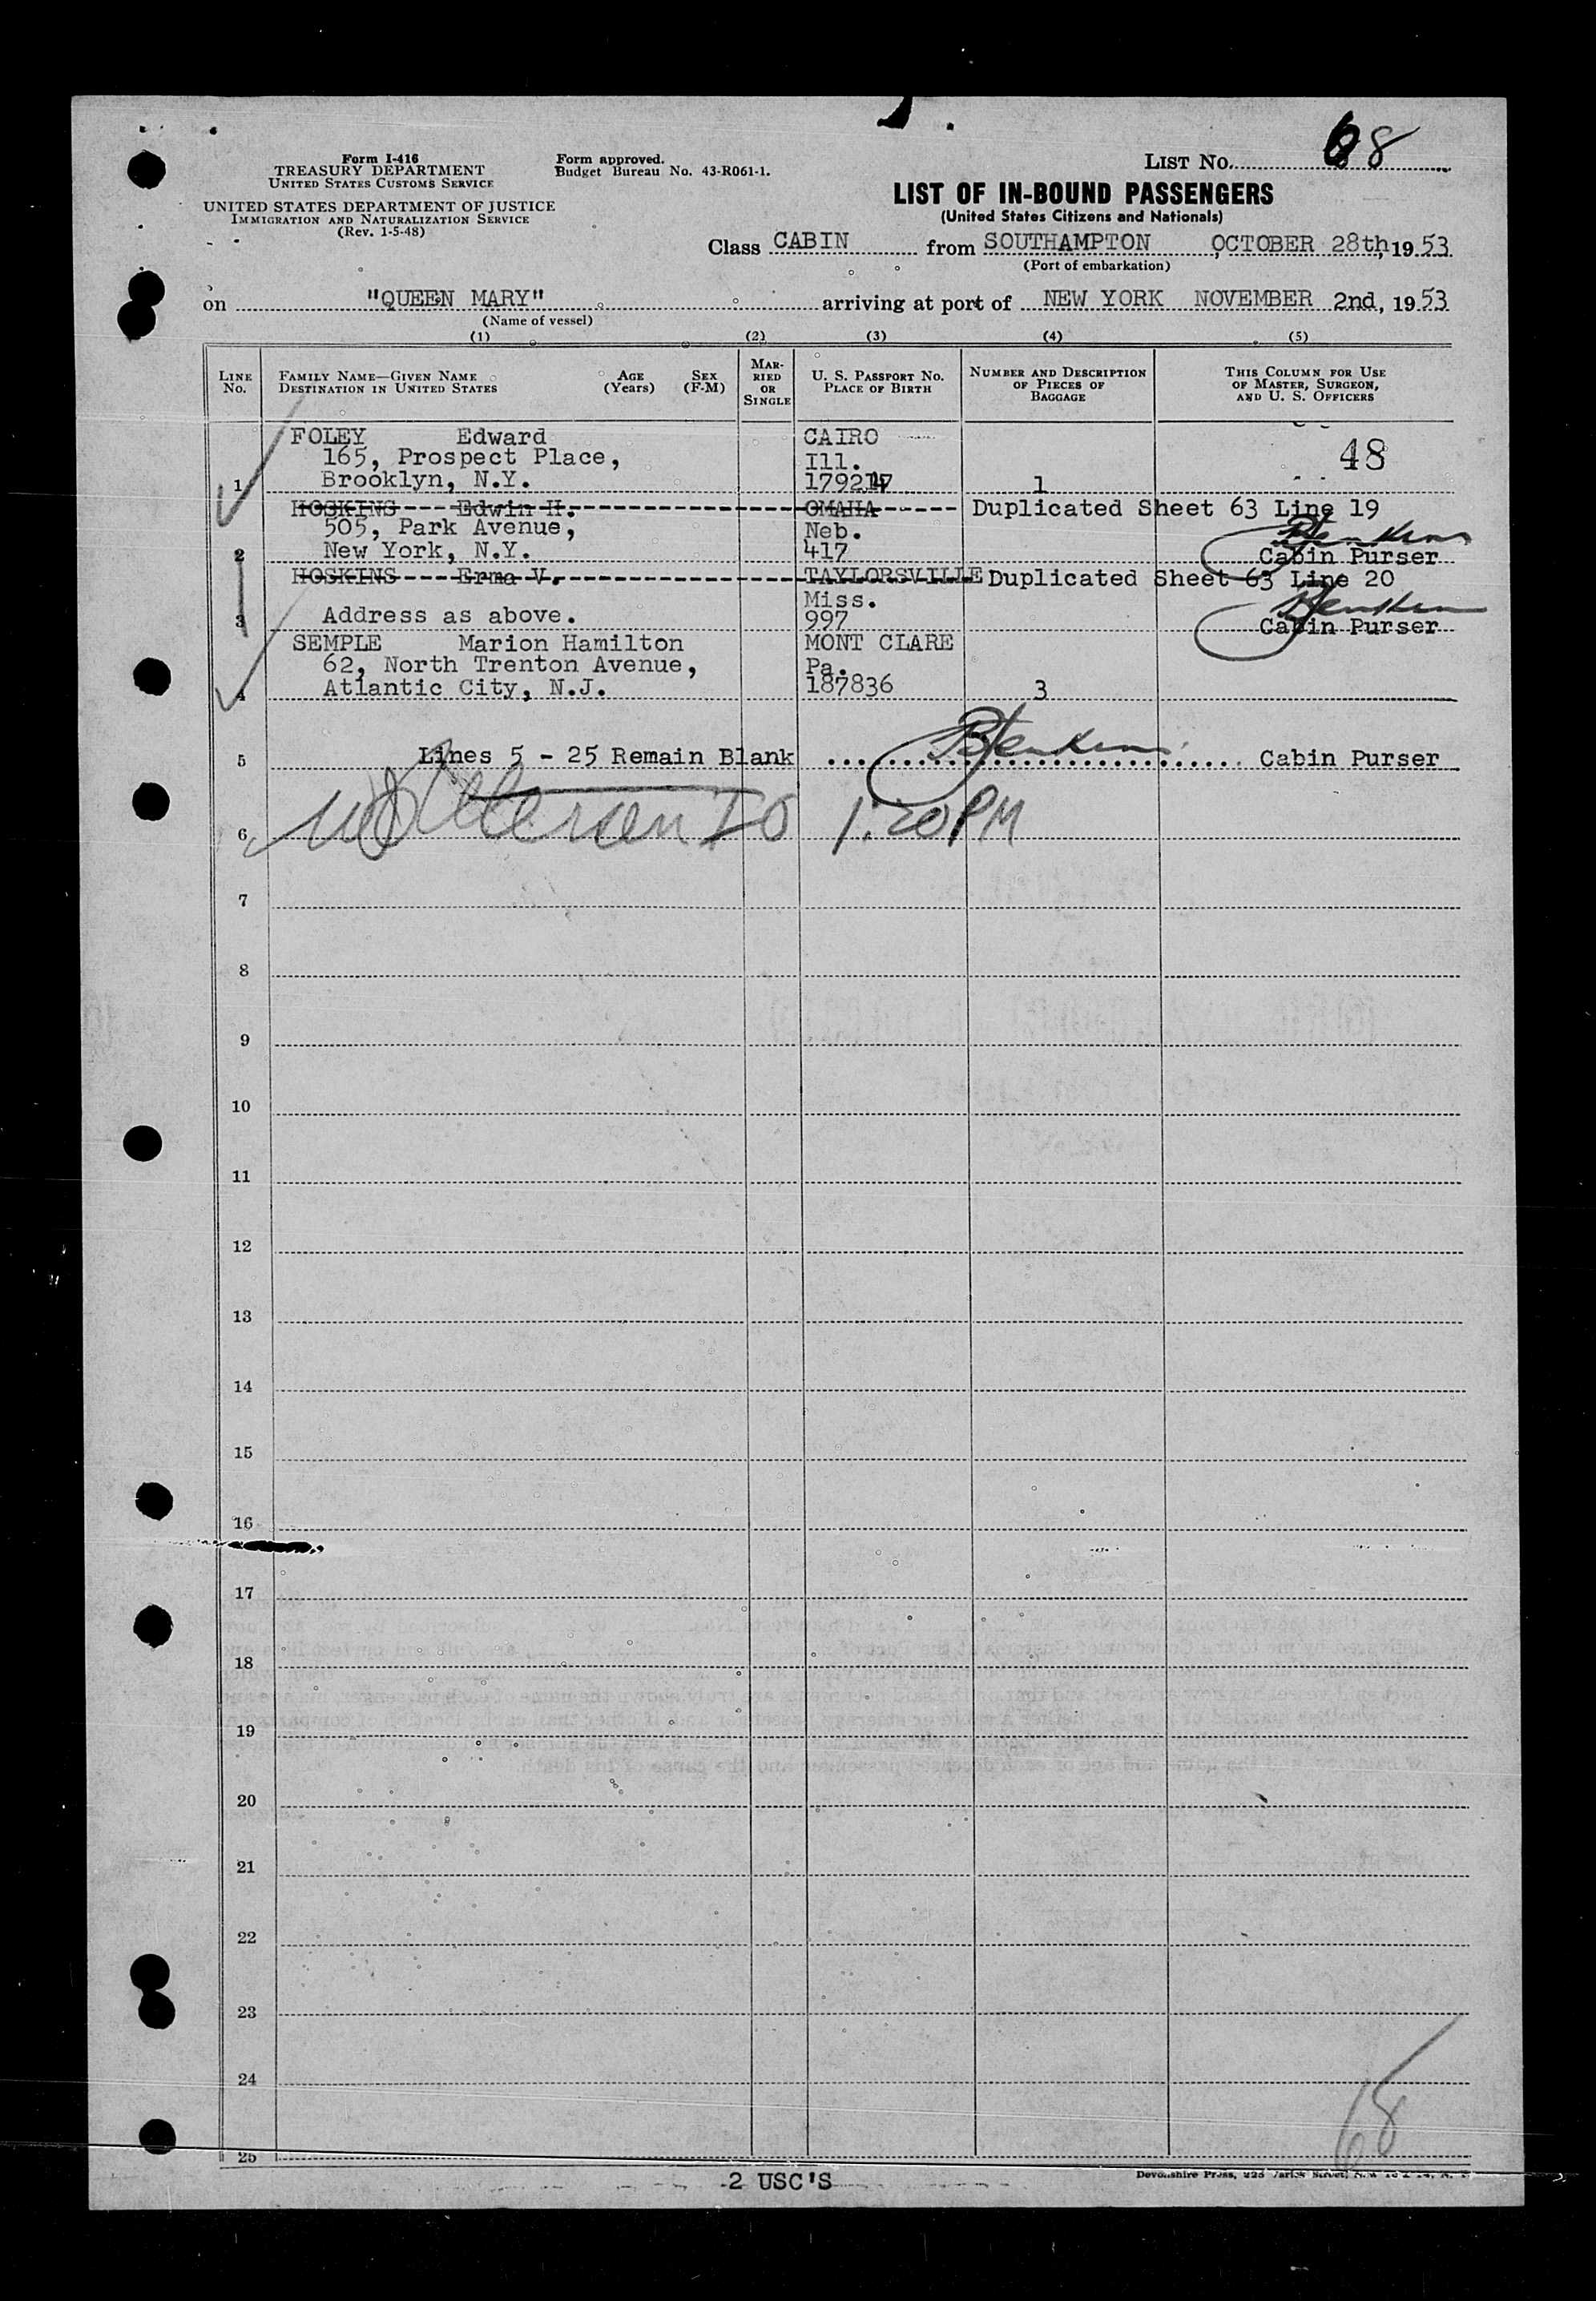 Form I-416
TREASURY DEPARTMENT
UNITED STATES CUSTOMS SERVICE
UNITED STATES DEPARTMENT OF JUSTICE
IMMIGRATION AND NATURALIZATION SERVICE
(Rev. 1-5-48)
Form approved.
Budget Bureau No. 43-R061-1.
LIST No. 68
LIST OF IN-BOUND PASSENGERS
(United States Citizens and Nationals)
Class CABIN from SOUTHAMPTON OCTOBER 28th, 1953
(Port of embarkation)
on "QUEEN MARY" arriving at port of NEW YORK NOVEMBER 2nd, 1953
(Name of vessel)
(1) (2) (3) (4) (5)
LINE NO.
FAMILY NAME—GIVEN NAME
DESTINATION IN UNITED STATES
AGE (Years)
SEX (F-M)
MARRIED OR SINGLE
U. S. PASSPORT NO.
PLACE OF BIRTH
NUMBER AND DESCRIPTION OF PIECES OF BAGGAGE
THIS COLUMN FOR USE OF MASTER, SURGEON, AND U. S. OFFICERS
FOLEY Edward CAIRO 48
165, Prospect Place, Ill.
1 Brooklyn, N.Y. 1
HOSKINS Edwin H. OMAHA Duplicated Sheet 63 Line 19
505, Park Avenue, Neb.
2 New York, N.Y. 417 Cabin Purser
HOSKINS Erma V. TAYLORSVILLE Duplicated Sheet 63 Line 20
Miss.
3 Address as above. 997 Cabin Purser
SEMPLE Marion Hamilton MONT CLARE
62, North Trenton Avenue, Pa.
4 Atlantic City, N.J. 187836 3
5 Lines 5 - 25 Remain Blank Cabin Purser
6 1:20 PM
7
8
9
10
11
12
13
14
15
16
17
18
19
20
21
22
23
24
25
68
2 USC'S